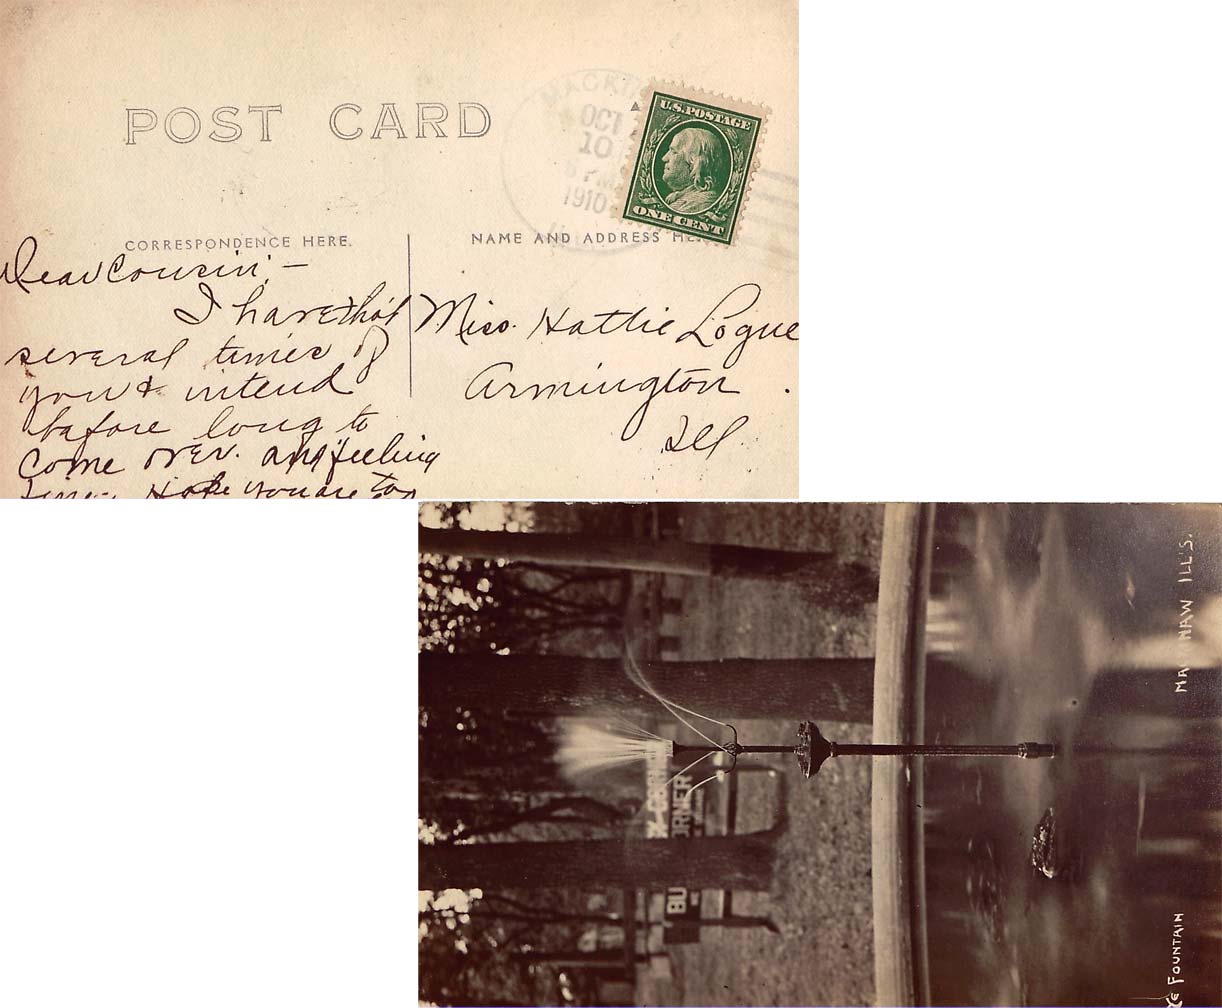 POST CARD
OCT
10
PM
1910
U.S.POSTAGE
ONE CENT
CORRESPONDENCE HERE.
NAME AND ADDRESS HE
Dear Cousin;-
I have tho't
several times of
you & intend
before long to
come over. am feeling
fine. Hope you are too
Miss. Hattie Logue
Armington
Ill
MACKINAW ILL'S.
FOUNTAIN
ORNER
BU